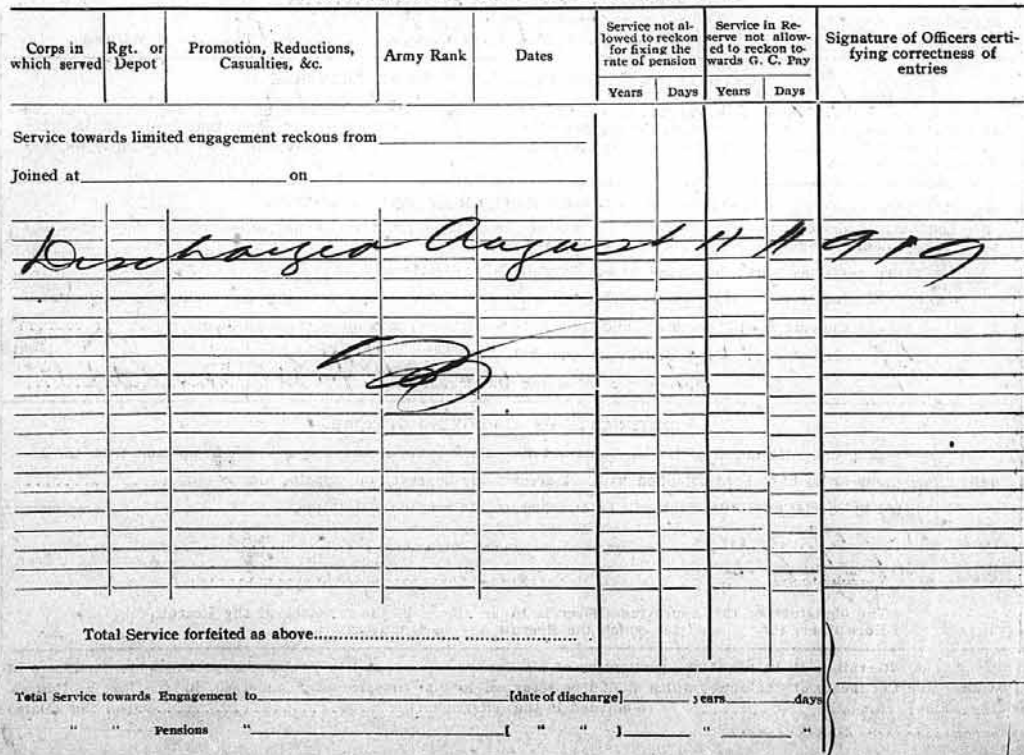 Corps in which served
Rgt. or Depot
Promotion, Reductions, Casualties, &c.
Army Rank
Dates
Service not allowed to reckon for fixing the rate of pension
Years Days
Service in Reserve not allowed to reckon towards G. C. Pay
Years Days
Signature of Officers certifying correctness of entries
Service towards limited engagement reckons from
Joined at on
Discharged August 11 1919
Total Service forfeited as above
Total Service towards Engagement to [date of discharge] years days
" " Pensions " [ " " ] " "